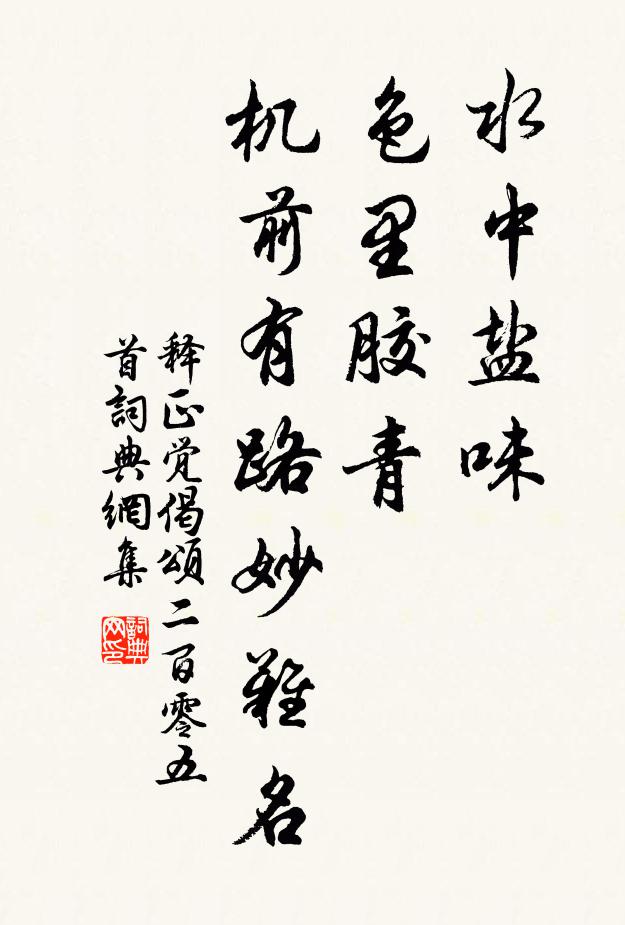 水中盐味
色里胶青
机前有路妙难名
释正觉偈頌二百零五
首詞典網集
詞典网印